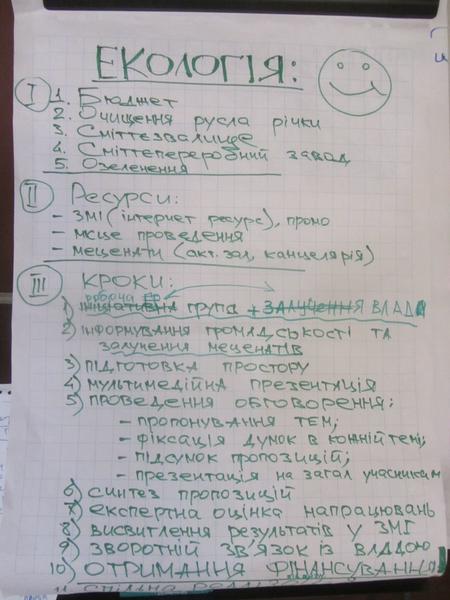 ЕКОЛОГІЯ:
I 1. Бюджет
2. Очищення русла річки
3. Сміттєзвалище
4. Сміттепереробний завод
5. Озеленення
II Ресурси:
– ЗМІ (інтернет ресурс), промо
– місце проведення
– меценати (акт. зал, канцелярія)
III КРОКИ:
робоча
1) ініціативна група + ЗАЛУЧЕННЯ ВЛАДИ
2) інформування громадськості та
залучення меценатів
3) підготовка простору
4) мультимедійна презентація
5) проведення обговорення:
– пропонування тем;
– фіксація думок в кожній темі;
– підсумок пропозицій;
– презентація на загал учасникам
6) синтез пропозицій
7) експертна оцінка напрацювань
8) висвітлення результатів у ЗМІ
9) зворотній зв'язок із владою
10) ОТРИМАННЯ ФІНАНСУВАННЯ